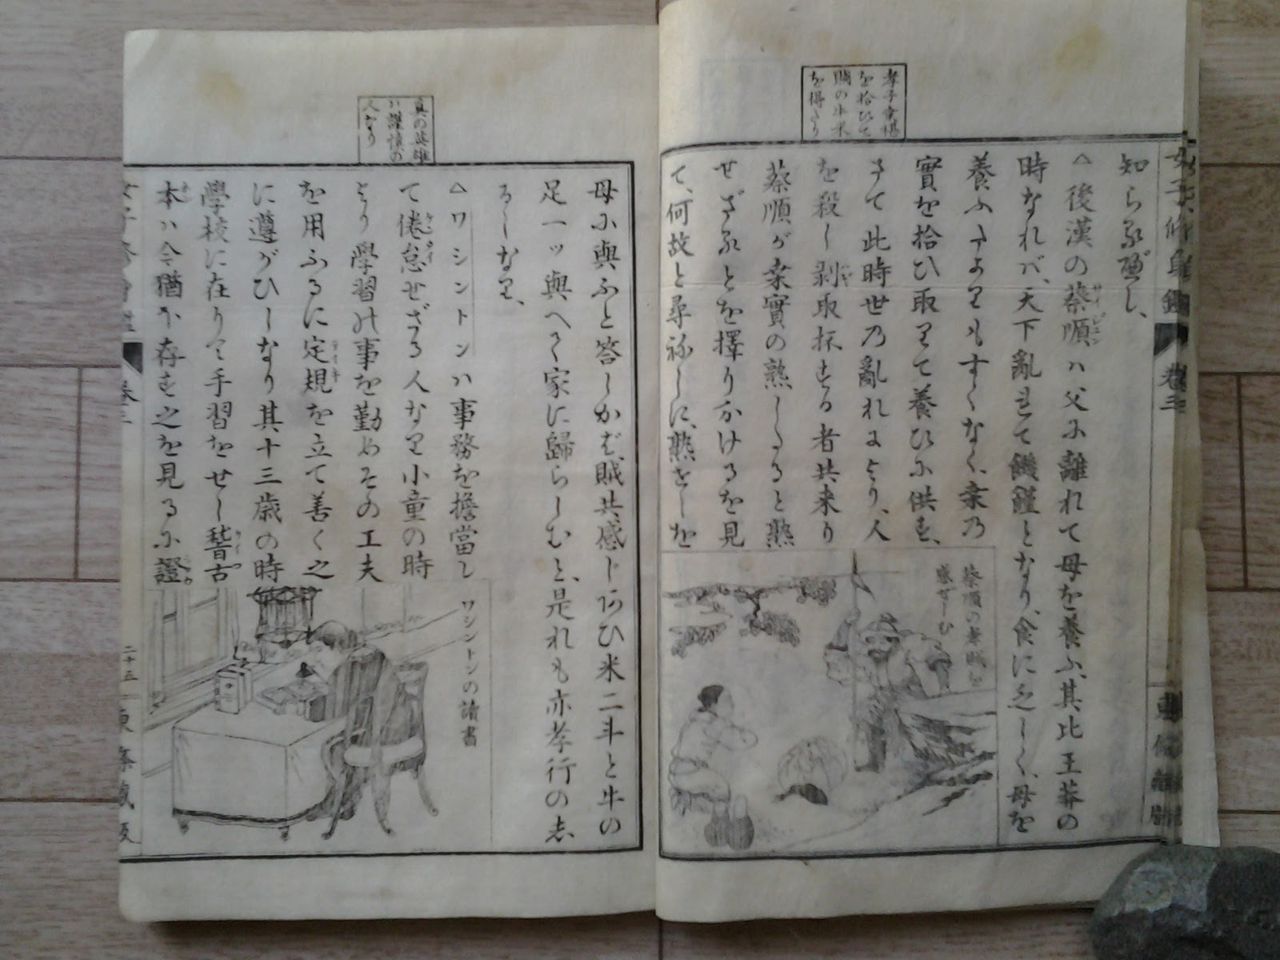 孝子桑椹
を拾ひて
賊の牛米
を得たり
知らる可し、
△後漢の蔡順ハ父に離れて母を養ふ、其比王莽の
時なれバ、天下亂をて饑饉となり、食に乏しく、母を
養ふたよりもすくなく、桑乃
實を拾ひ取りて養ひに供を、
さて此時世乃亂れより、人
を殺し剥取抔する者共来り
蔡順が桑實の熟したると熟
せざるとを擇り分けるを見
て、何故と尋ねしに、熟をしを
蔡順の孝賊を
感ぜしむ
女子修身鑑
卷三
真の英雄
ハ謹慎の
人なり
母に與ふと答しかば、賊共感じ
米二斗と牛の
足一ッ與へて家に歸らしむと、是れも亦孝行の志
るしなり、
△ワシントンハ事務を擔當し
て倦怠せざる人なり小童の時
より學習の事を勤めその工夫
を用ふるに定規を立て善く之
に遵がひしなり其十三歳の時
學校に在りて手習をせし聟古
本ハ今猶ほ存す之を見るに證
ワシントンの讀書
二十五